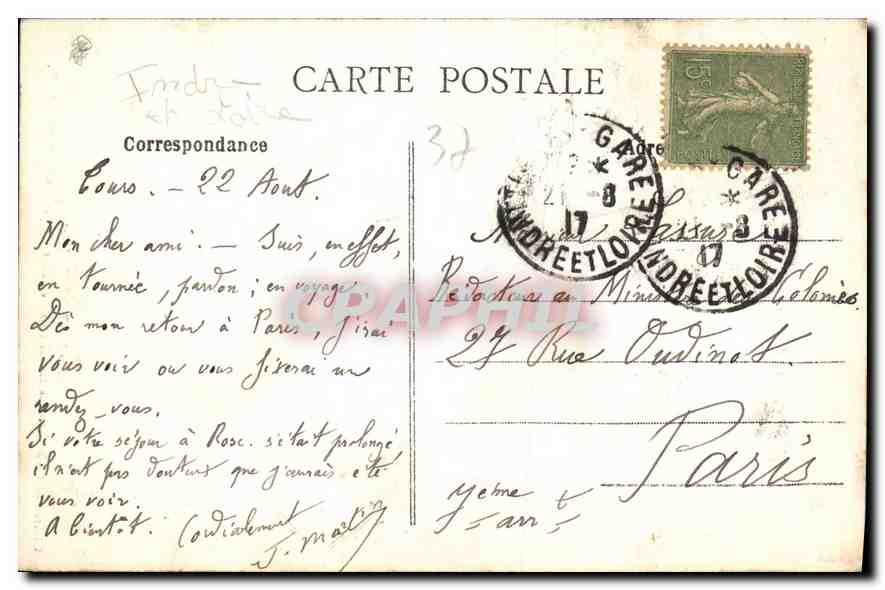 Indre
et Loire
CARTE POSTALE
37
15c
Correspondance
Adre
GARE
21 -8
17
INDRE ET LOIRE
GARE
-8
17
INDRE ET LOIRE
Tours. - 22 Aout.
Mon cher ami. - Suis, en effet,
en tournée, pardon; en voyage.
Dès mon retour à Paris, j'irai
vous voir ou vous fixerai un
rendez-vous.
Si votre séjour à Rosc. s'était prolongé
il n'est pas douteux que j'aurais été
vous voir.
A bientôt. Cordialement
J. Martin
Lassus
Rédacteur au Ministère des Colonies
27 Rue Oudinot.
Paris
7eme
arrt
CPAPHIL